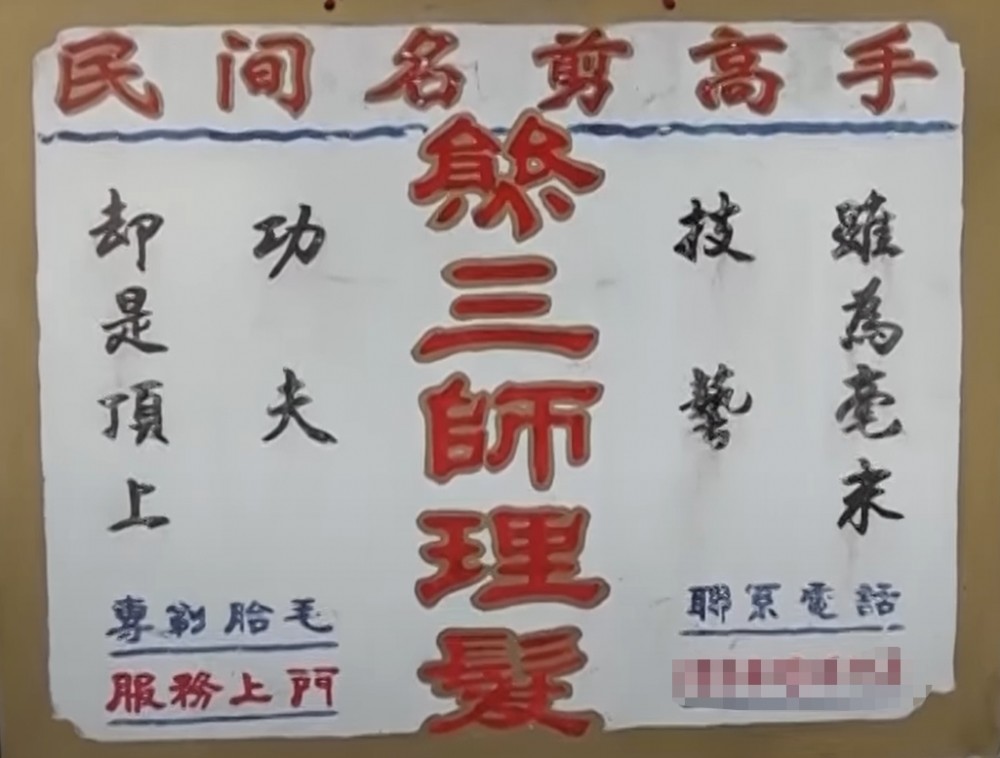 民间名剪高手
三師理髮
雖為毫末
技藝
却是頂上
功夫
聯系電話
專剃胎毛
服務上門